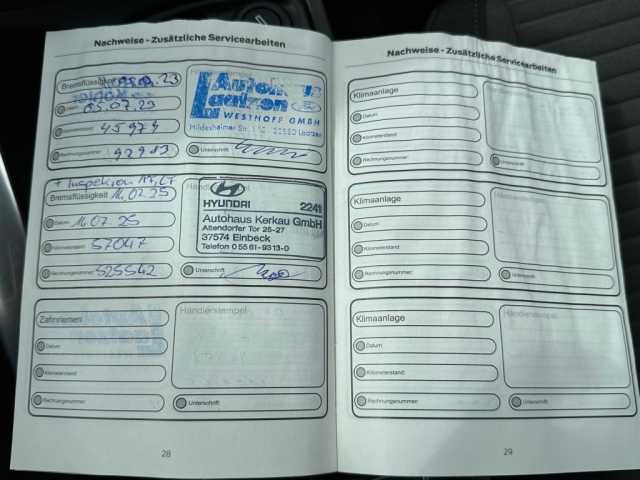 Nachweise - Zusätzliche Servicearbeiten
Bremsflüssigkeit
Datum 05.07.23
Kilometerstand 45974
Rechnungsnummer
WESTHOFF GMBH
Hildesheimer Str.
Unterschrift:
+ Inspektion
Bremsflüssigkeit 16.07.25
Datum: 16.07.25
Kilometerstand: 57047
Rechnungsnummer: 525542
Händlerstempel:
HYUNDAI 2241
Autohaus Kerkau GmbH
Altendorfer Tor 25-27
37574 Einbeck
Telefon 0 55 61-93 13-0
Unterschrift:
Zahnriemen
Datum:
Kilometerstand:
Rechnungsnummer:
Händlerstempel:
Unterschrift:
28
Nachweise - Zusätzliche Servicearbeiten
Klimaanlage
Datum:
Kilometerstand:
Rechnungsnummer:
Händlerstempel:
Unterschrift:
Klimaanlage
Datum:
Kilometerstand:
Rechnungsnummer:
Händlerstempel:
Unterschrift:
Klimaanlage
Datum:
Kilometerstand:
Rechnungsnummer:
Händlerstempel:
Unterschrift:
29